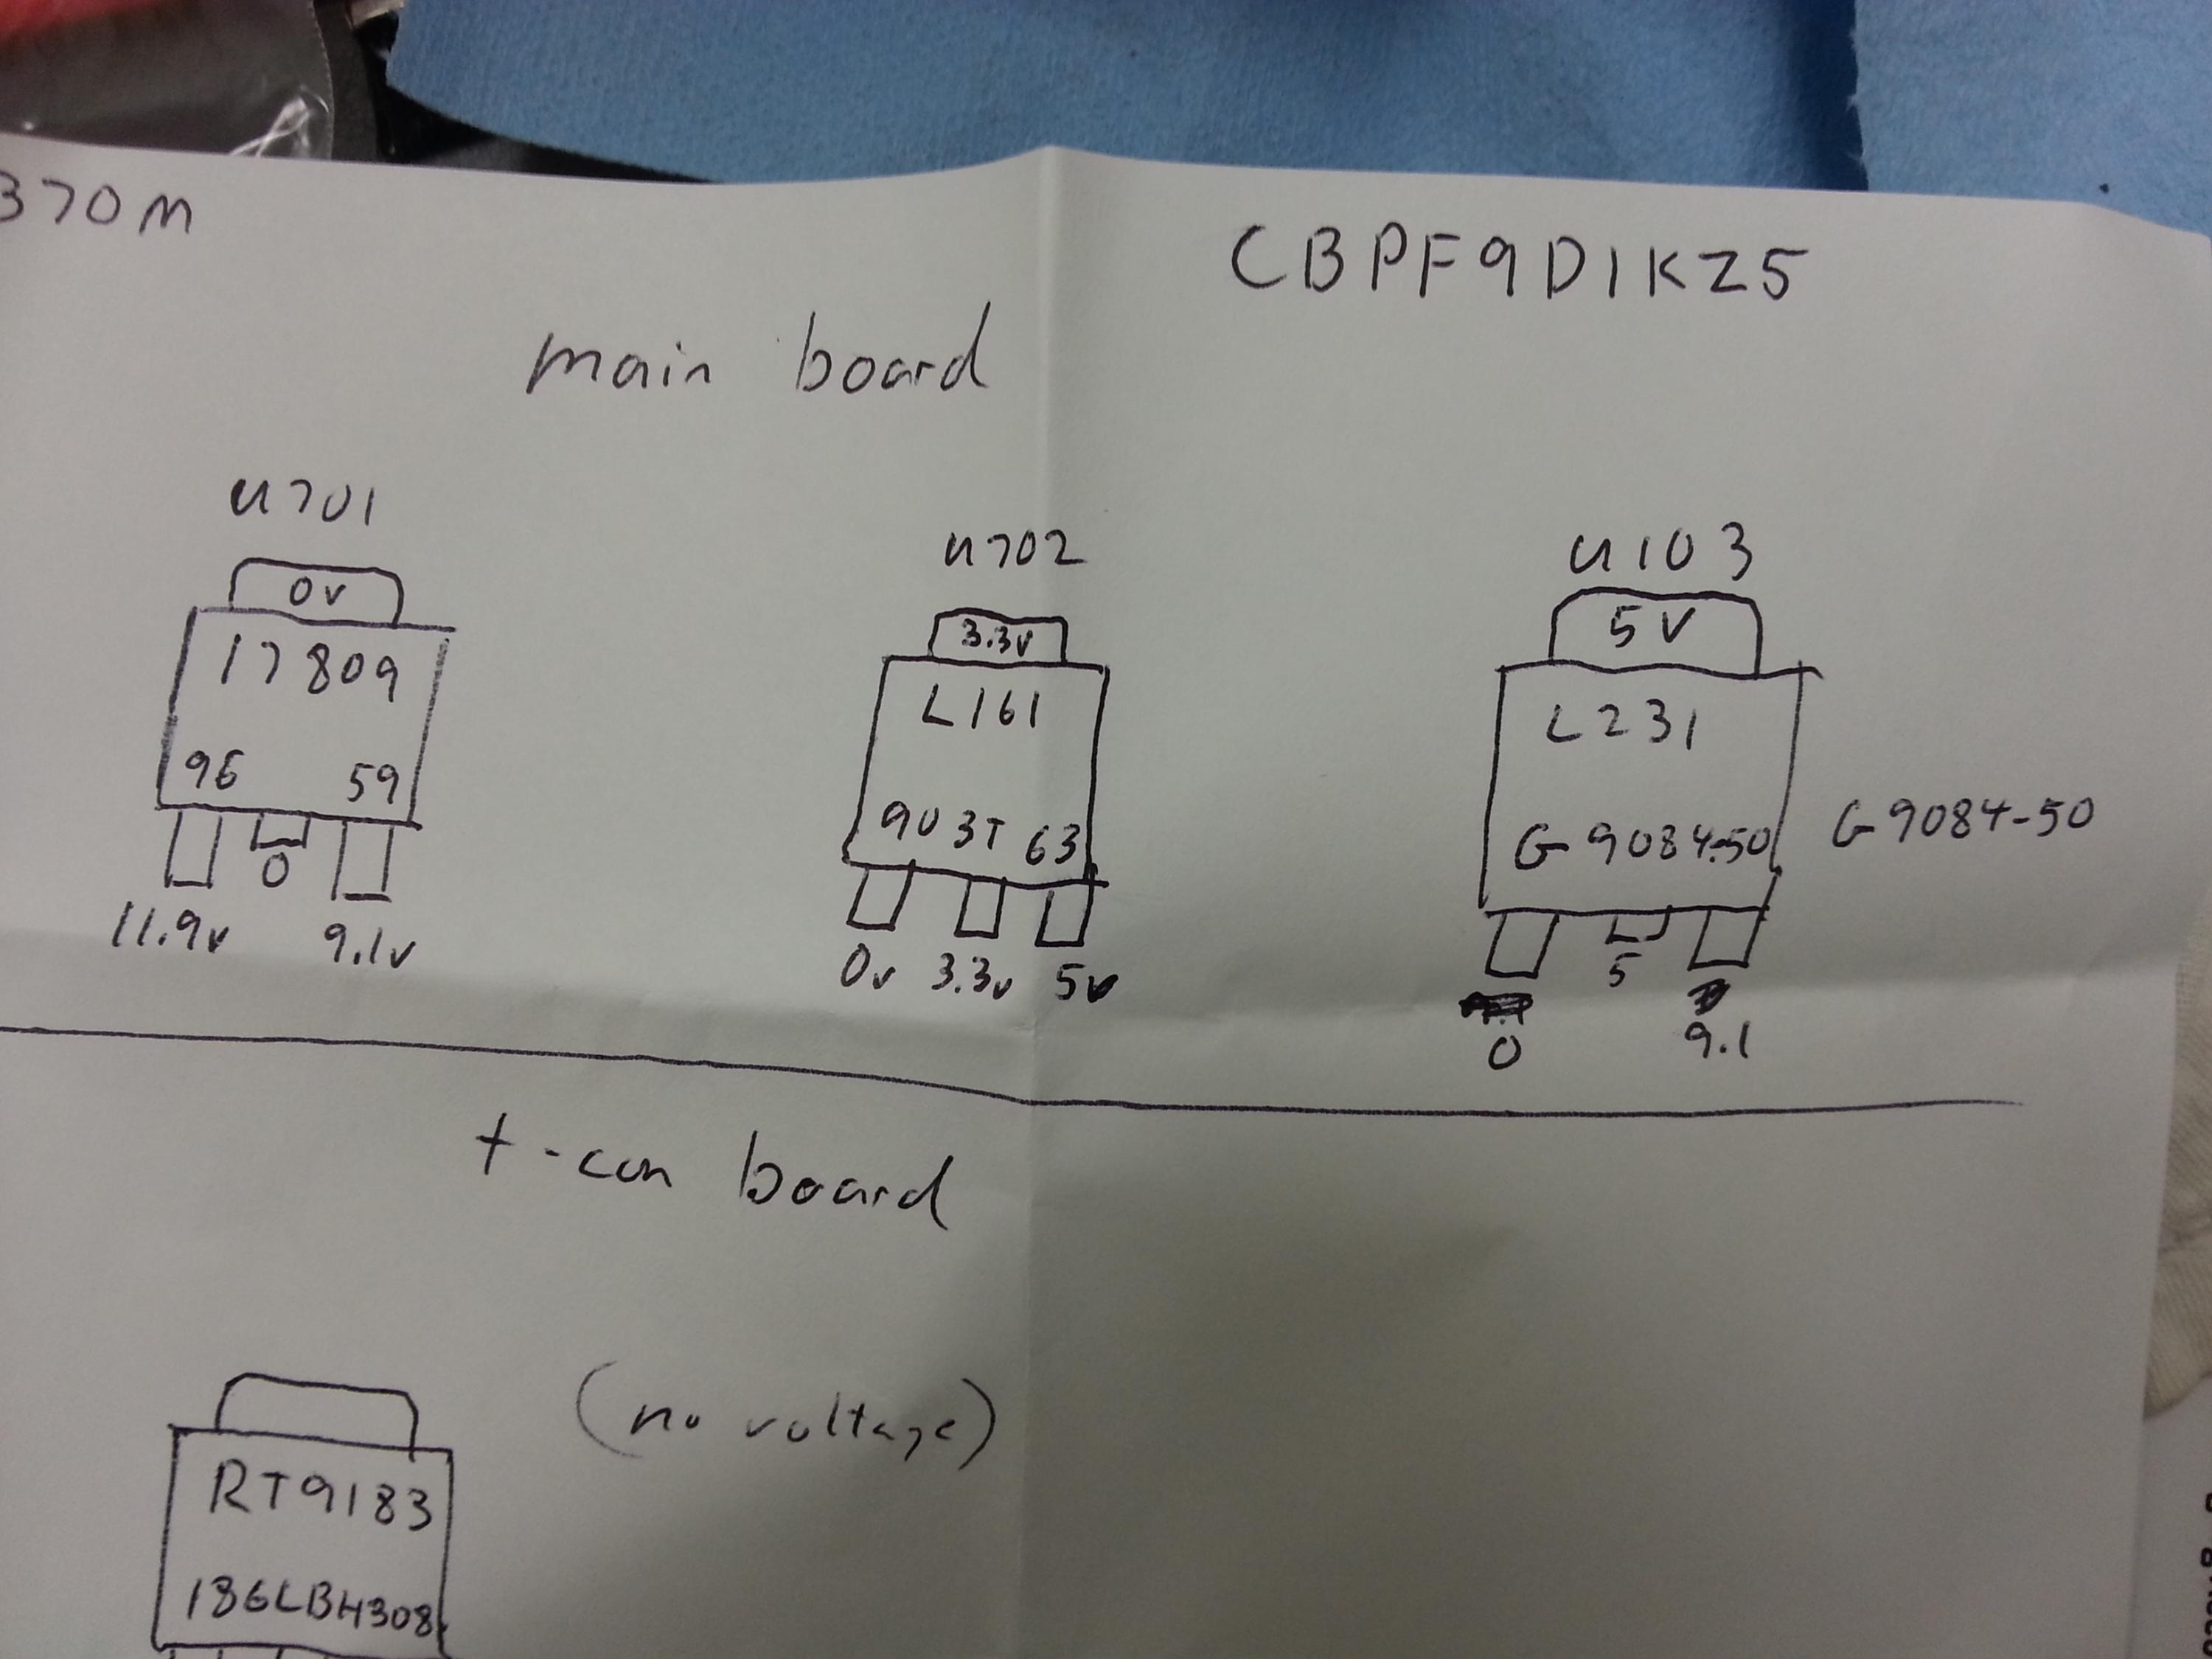 370M
CBPF9D1KZ5
main board
U701
0v
17809
96 59
0
11.9v 9.1v
U702
3.3v
L161
903T 63
0v 3.3v 5v
U103
5V
L231
G9084-50
G9084-50
5
0 9.1
t-con board
(no voltage)
RT9183
186LBH308